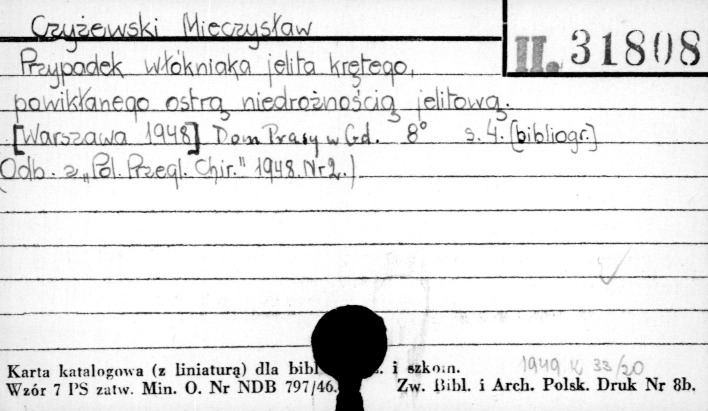 Czyżewski Mieczysław
II. 31808
Przypadek włókniaka jelita krętego,
powikłanego ostrą niedrożnością jelitową.
[Warszawa 1948] Dom Prasy w Gd. 8° s. 4. [bibliogr.]
(Odb. z „Pol. Przegl. Chir." 1948. Nr 2.)
1949 K 33/20
Karta katalogowa (z liniaturą) dla bibl i szkoln.
Wzór 7 PS zatw. Min. O. Nr NDB 797/46. Zw. Bibl. i Arch. Polsk. Druk Nr 8b.